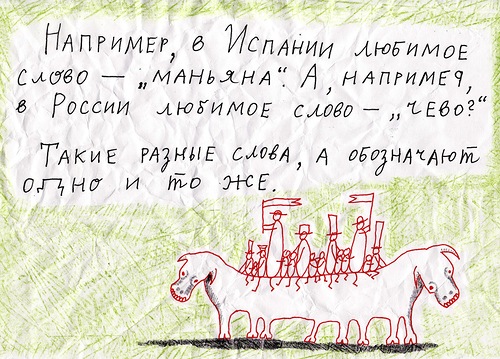 Например, в Испании любимое
слово — „маньяна". А, например,
в России любимое слово — „чево?"
Такие разные слова, а обозначают
одно и то же.